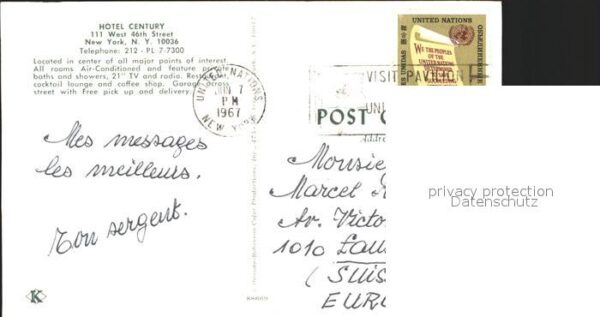 HOTEL CENTURY
111 West 46th Street
New York, N. Y. 10036
Telephone: 212 - PL 7-7300
Located in center of all major points of interest.
All rooms Air-Conditioned and feature private
baths and showers, 21" TV and radio. Restaurant,
cocktail lounge and coffee shop. Garage across
street with Free pick up and delivery.
Mes messages
les meilleurs.
Ton sergent.
K
UNITED NATIONS
JUN 7
PM
1967
NEW YORK
VISIT PAVILION
UNI
UNITED NATIONS
WE THE PEOPLES
OF THE UNITED NATIONS
POST C
Addre
Monsie
Marcel
Av. Victo
1010 Lau
(SUIS
EURO
privacy protection
Datenschutz